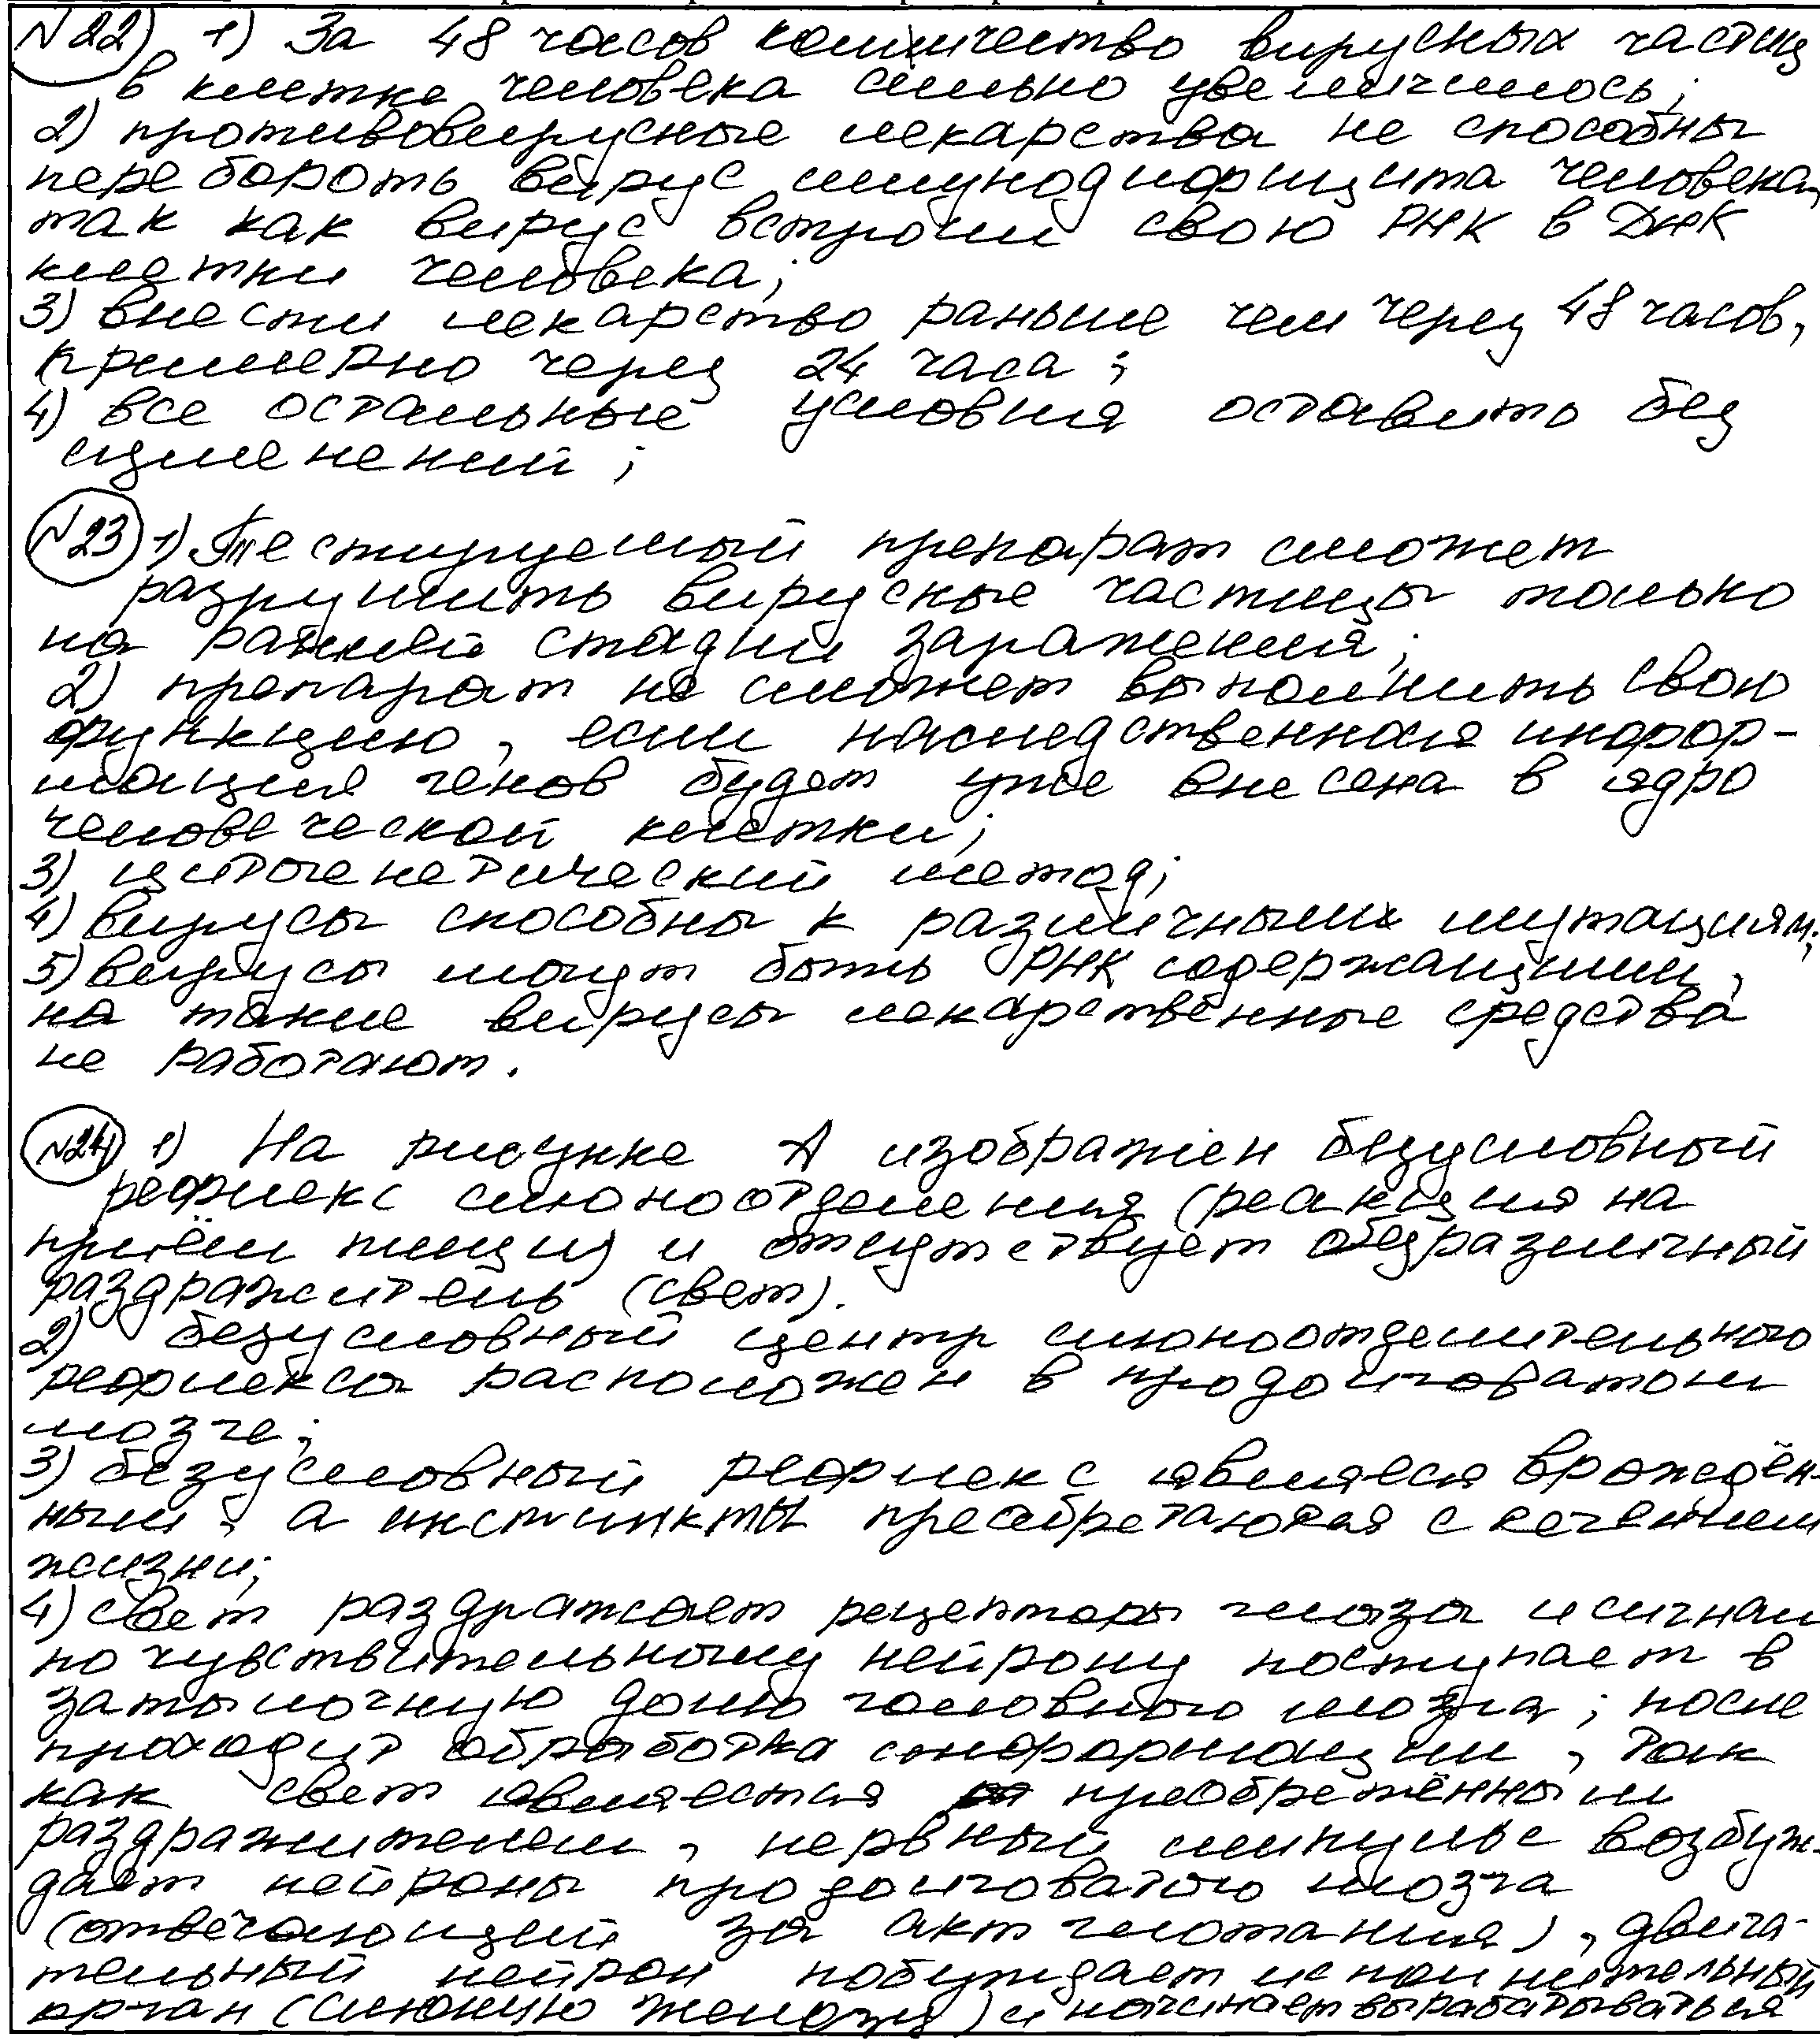 N22) 1) За 48 часов количество вирусных частиц
в клетке человека сильно увеличилось;
2) противовирусные лекарства не способны
перебороть вирус иммунодифицита человека,
так как вирус встроил свою РНК в ДНК
клетки человека;
3) внести лекарство раньше чем через 48 часов,
примерно через 24 часа;
4) все остальные условия оставить без
изменений;
N23 1) Тестируемый препарат сможет
разрушить вирусные частицы только
на ранней стадии заражения;
2) препарат не сможет выполнить свою
функцию, если наследственная инфор-
мация генов будет уже внесена в ядро
человеческой клетки;
3) цитогенетический метод;
4) вирусы способны к различным мутациям;
5) вирусы могут быть РНК содержащими,
на такие вирусы лекарственные средства
не работают.
N24 1) На рисунке А изображен безусловный
рефлекс слюноотделения (реакция на
приём пищи) и отсутствует безразличный
раздражитель (свет).
2) безусловный центр слюноотделительного
рефлекса расположен в продолговатом
мозге;
3) безусловный рефлекс являеся врождён-
ным, а инстинкты преобретаются с течением
жизни;
4) свет раздражает рецепторы глаза и сигнал
по чувствительному нейрону поступает в
затылочную долю головного мозга; после
проходит обработка информации, так
как свет является преобретённым
раздражителем, нервный импульс возбуж-
дает нейроны продолговатого мозга
(отвечающей за акт глотания), двига-
тельный нейрон побуждает исполнительный
орган (слюнную железу) и начинает вырабатываться